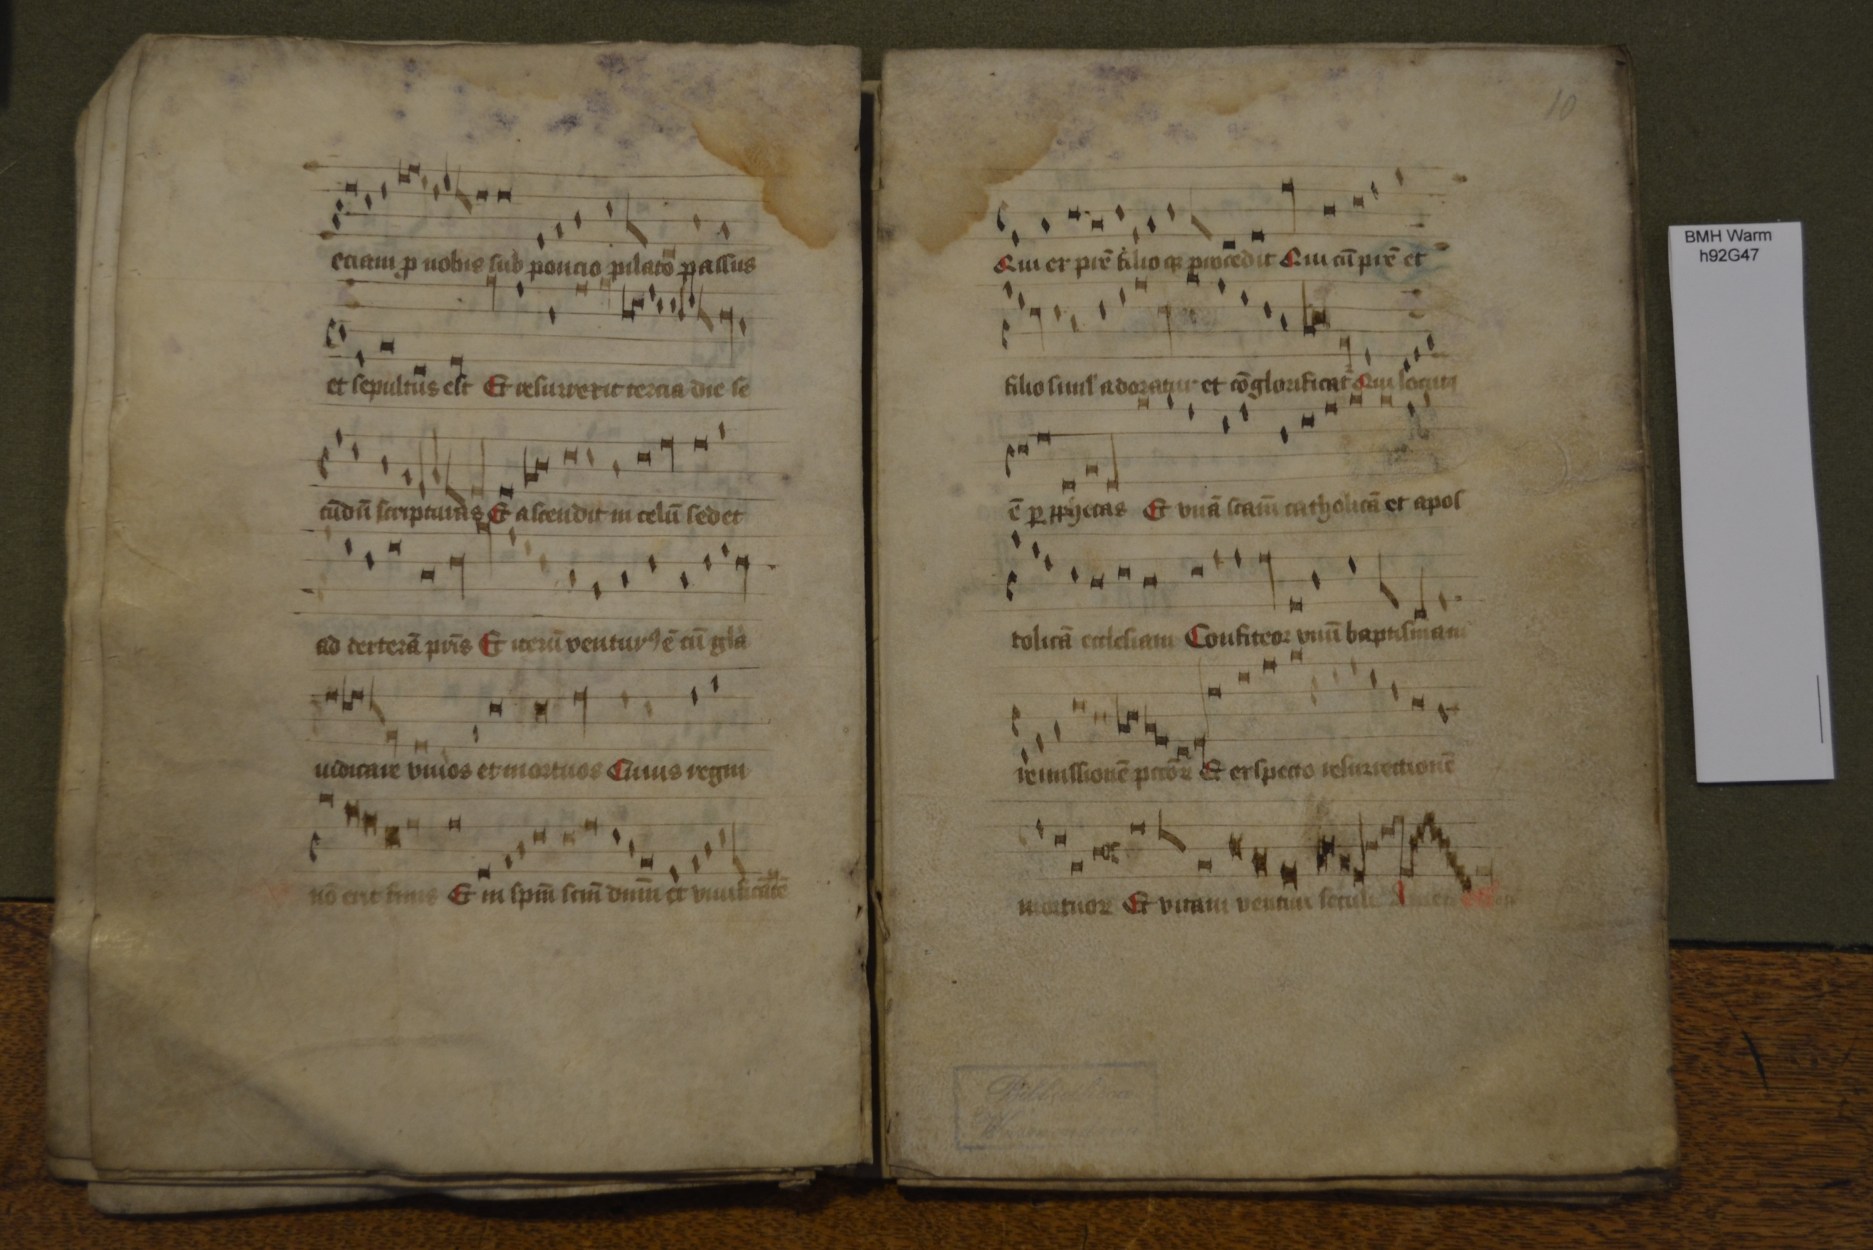 etiam ꝓ nobis sub poncio pilato passus
et sepultus est Et resurrexit tercia die se
cūdū scripturas Et ascendit in celū sedet
ad dexterā pr̄is Et iterū venturꝰ ē cū gl̄a
iudicare viuos et mortuos Cuius regni
nō erit finis Et in sp̄m sc̄m dn̄m et viuificātē
10
Qui ex pr̄e filioqꝫ procedit Qui cū pr̄e et
filio simul adoratur et cōglorificat̄ Qui locut
ē ꝑ ꝓphetas Et vnā sc̄am catholicā et apos
tolicā ecclesiam Confiteor vnū baptismam
remissionē pctōꝝ Et exspecto resurrectionē
mortuoꝝ Et vitam venturi seculi Amen
BMH Warm
h92G47